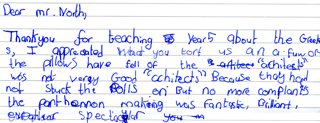 Dear mr. North,
Thankyou for teaching 5 Years about the Greek
s, I apprecated what you tort us on a few of
the pillows have fell of the "architects"
was not verry Good "achitects" Because they had
not stuck the Polls on But no more complants
the parthannon making was Fantastic, Brilliant,
Spectacular you